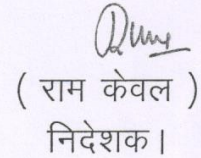 ( राम केवल )
निदेशक।